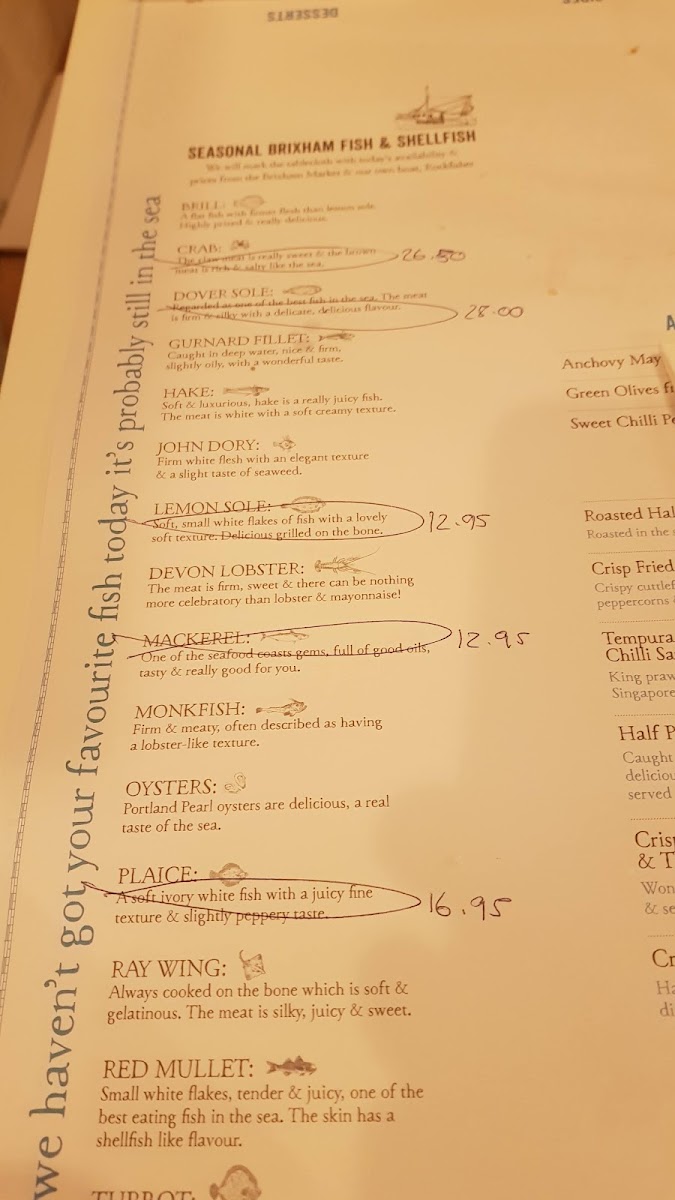 DESSERTS
SEASONAL BRIXHAM FISH & SHELLFISH
We will mark the tablecloth with today's availability &
prices from the Brixham Market & our own boat, Rockfisher
we haven't got your favourite fish today it's probably still in the sea
BRILL:
A flat fish with firmer flesh than lemon sole.
Highly prized & really delicious.
CRAB:
The claw meat is really sweet & the brown
meat is rich & salty like the sea.
26.50
DOVER SOLE:
Regarded as one of the best fish in the sea. The meat
is firm & silky with a delicate, delicious flavour.
28.00
GURNARD FILLET:
Caught in deep water, nice & firm,
slightly oily, with a wonderful taste.
HAKE:
Soft & luxurious, hake is a really juicy fish.
The meat is white with a soft creamy texture.
JOHN DORY:
Firm white flesh with an elegant texture
& a slight taste of seaweed.
LEMON SOLE:
Soft, small white flakes of fish with a lovely
soft texture. Delicious grilled on the bone.
12.95
DEVON LOBSTER:
The meat is firm, sweet & there can be nothing
more celebratory than lobster & mayonnaise!
MACKEREL:
One of the seafood coasts gems, full of good oils,
tasty & really good for you.
12.95
MONKFISH:
Firm & meaty, often described as having
a lobster-like texture.
OYSTERS:
Portland Pearl oysters are delicious, a real
taste of the sea.
PLAICE:
A soft ivory white fish with a juicy fine
texture & slightly peppery taste.
16.95
RAY WING:
Always cooked on the bone which is soft &
gelatinous. The meat is silky, juicy & sweet.
RED MULLET:
Small white flakes, tender & juicy, one of the
best eating fish in the sea. The skin has a
shellfish like flavour.
TURBOT:
A
Anchovy May
Green Olives
Sweet Chilli
Roasted
Roasted in the
Crisp Fried
Crispy
peppercorns
Tempura
Chilli
King
Singapore
Half
Caught
served
& T
&